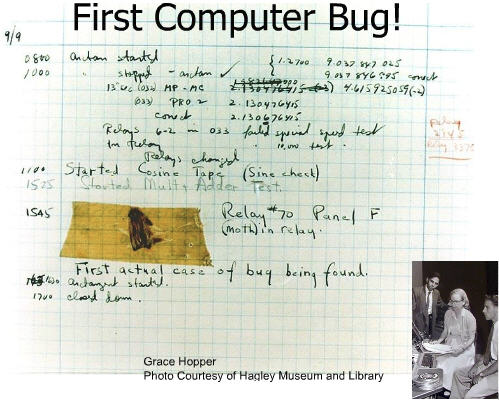 First Computer Bug!
9/9
0800 antan started
1000 " stopped - antan ✓ { 1.2700 9.037 847 025
9.037 846 995 conect
13"uc (033) MP - MC 2.130476415 4.615925059(-2)
(033) PRO 2 2.130476415
conect 2.130676415
Relays 6-2 in 033 failed special speed test
in Relay " 10.000 test .
Relays changed
Relay
2145
Relay 3370
1100 Started Cosine Tape (Sine check)
1525 Started Mult + Adder Test.
1545 Relay #70 Panel F
(Moth) in relay.
First actual case of bug being found.
antangent started.
1700 closed down.
Grace Hopper
Photo Courtesy of Hagley Museum and Library